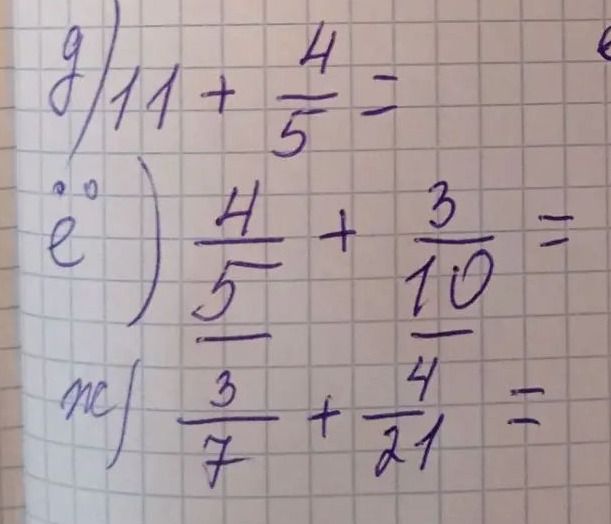 д) 11 + 4/5 =
ё) 4/5 + 3/10 =
ж) 3/7 + 4/21 =